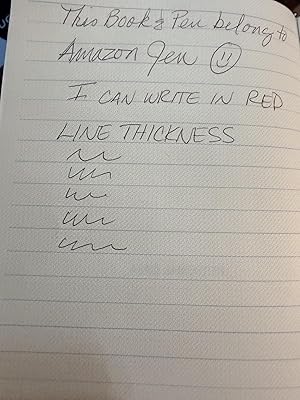 This Book & Pen belong to
Amazon Jen
I CAN WRITE IN RED
LINE THICKNESS